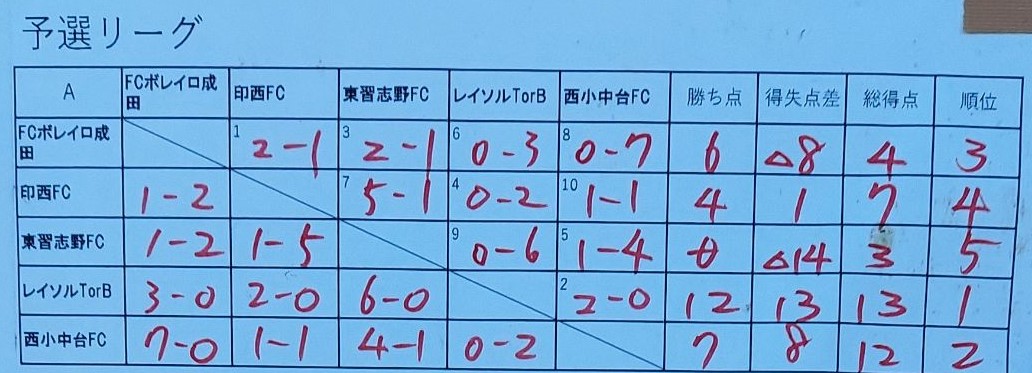 予選リーグ
A FCボレイロ成田 印西FC 東習志野FC レイソルTorB 西小中台FC 勝ち点 得失点差 総得点 順位
FCボレイロ成田 1 2-1 3 2-1 6 0-3 8 0-7 6 △8 4 3
印西FC 1-2 7 5-1 4 0-2 10 1-1 4 1 7 4
東習志野FC 1-2 1-5 9 0-6 5 1-4 0 △14 3 5
レイソルTorB 3-0 2-0 6-0 2 2-0 12 13 13 1
西小中台FC 7-0 1-1 4-1 0-2 7 8 12 2